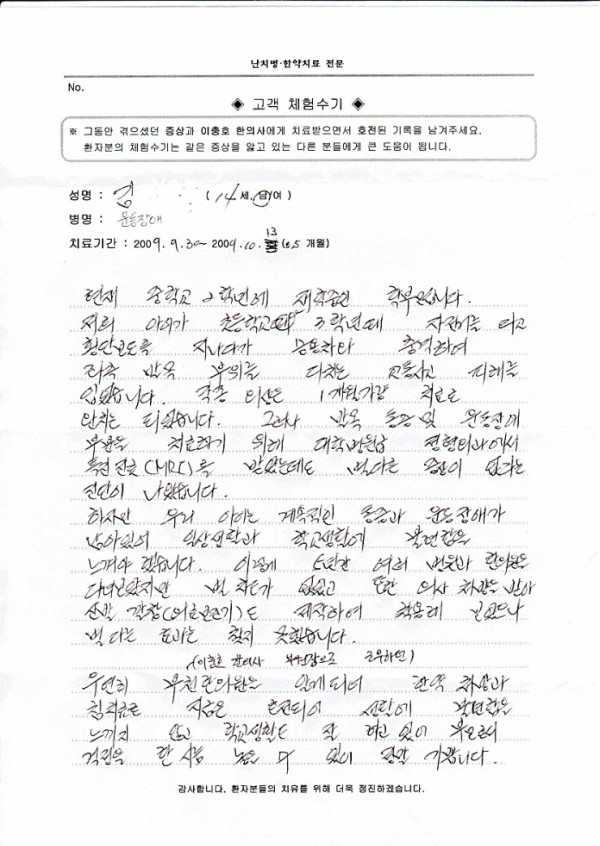 난치병·한약치료 전문
No.
◈ 고객 체험수기 ◈
※ 그동안 겪으셨던 증상과 이충호 한의사에게 치료받으면서 호전된 기록을 남겨주세요.
환자분의 체험수기는 같은 증상을 앓고 있는 다른 분들에게 큰 도움이 됩니다.
성명 : 김 (14세,남/여)
병명 : 운동장애
치료기간 : 2009. 9. 30~ 2009. 10. 13 (0.5 개월)
현재 중학교 2학년에 재학중인 학부모입니다.
저희 아이가 초등학교 3학년때 자전거를 타고
횡단보도를 지나다가 승용차와 충격하여
좌측 발목 부위를 다치는 교통사고 피해를
입었습니다. 각종 의상은 1개월가량 치료로
완치는 되었습니다. 그러나 발목 통증 및 운동장애
부분을 치료하기 위해 대학병원급 정형외과에서
특진 진료(MRI)을 받았는데도 별다른 원인이 없다는
진단이 나왔습니다.
하지만 우리 아이는 계속적인 통증과 운동장애가
남아있어 일상생활과 학교생활에 불편함을
느껴야 했습니다. 이렇게 5년간 여러 병원과 한의원을
다녀보았지만 별 차도가 없었고 또한 의사 처방을 받아
신발 깔창(의료보조기)도 제작하여 착용해 보았으나
별 다른 효과는 찾지 못했습니다.
(이충호 한의사 부원장으로 근무하던)
우연히 부천한의원을 알게되어 한약 처방과
침치료로 지금은 호전되어 생활에 불편함을
느끼지 않고 학교생활도 잘 하고 있어 부모로서
걱정을 한 시름 놓을 수 있어 정말 기쁩니다.
감사합니다. 환자분들의 치유를 위해 더욱 정진하겠습니다.